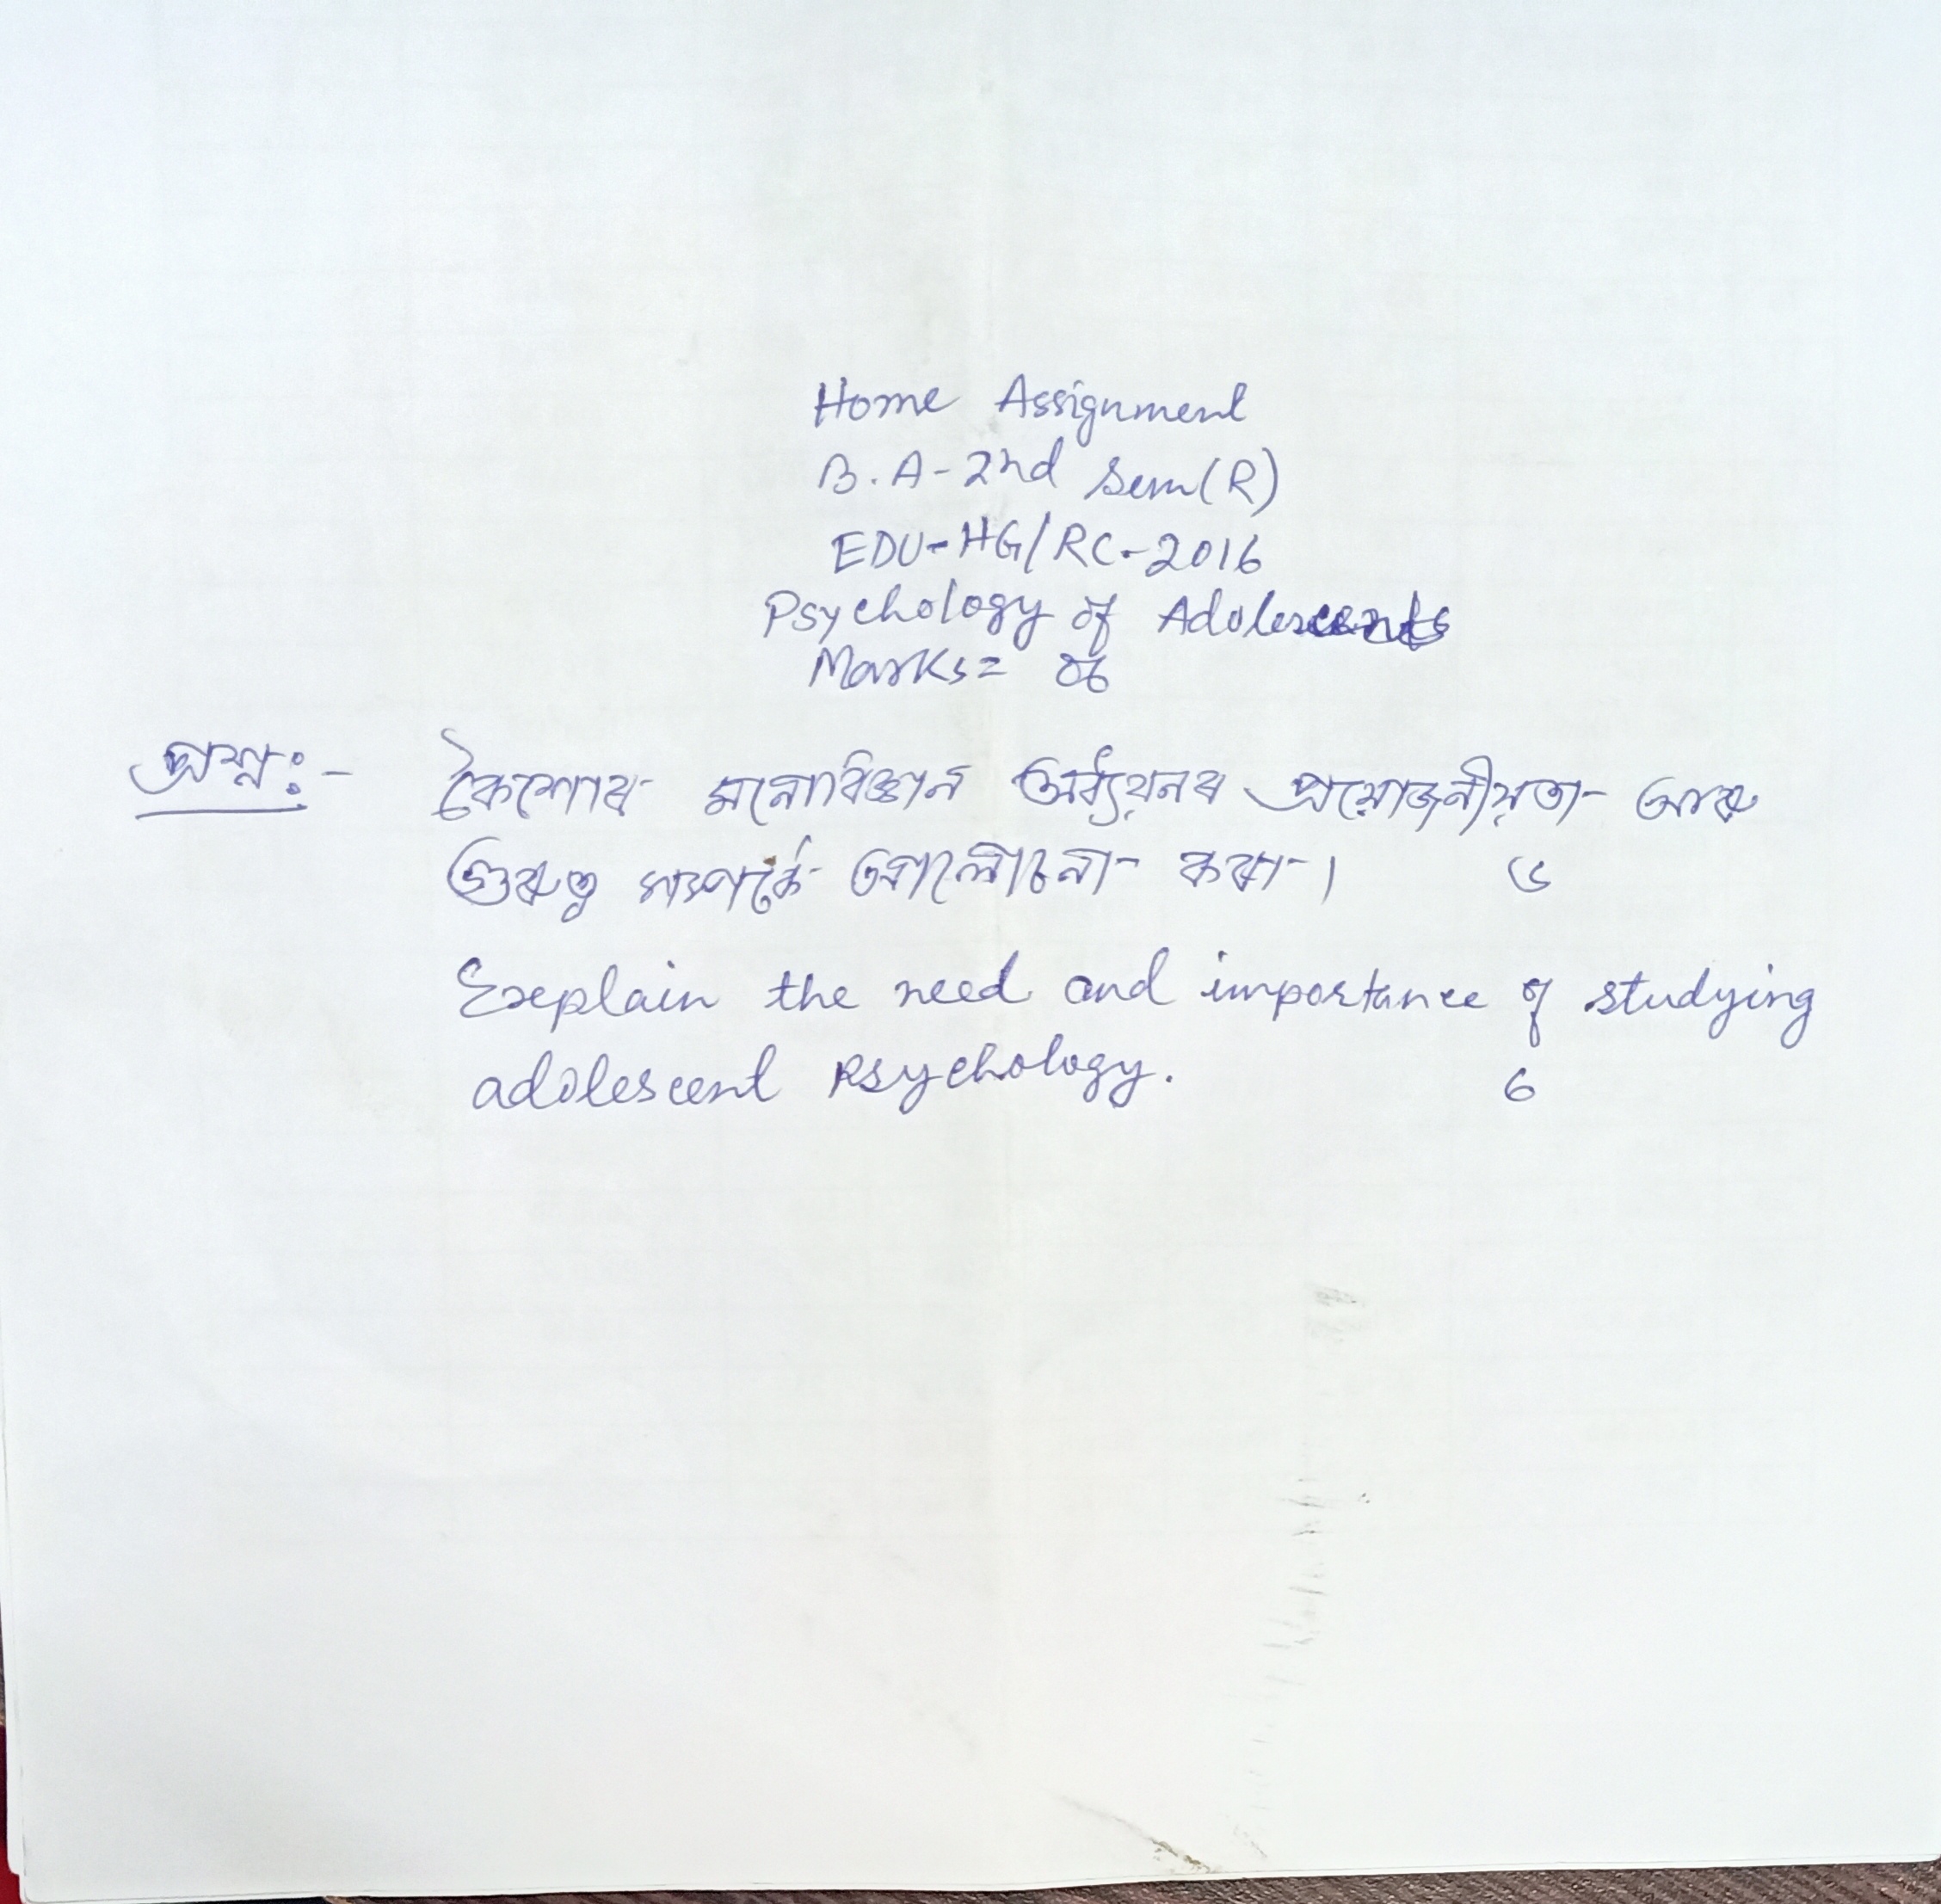 Home Assignment
B.A-2nd Sem(R)
EDU-HG/RC-2016
Psychology of Adolescents
Marks= 06
প্ৰশ্ন:-  কৈশোৰ মনোবিজ্ঞান অধ্য়য়নৰ প্ৰয়োজনীয়তা আৰু
গুৰুত্ব সম্পৰ্কে আলোচনা কৰা। ৬
Explain the need and importance of studying
adolescent Psychology. 6